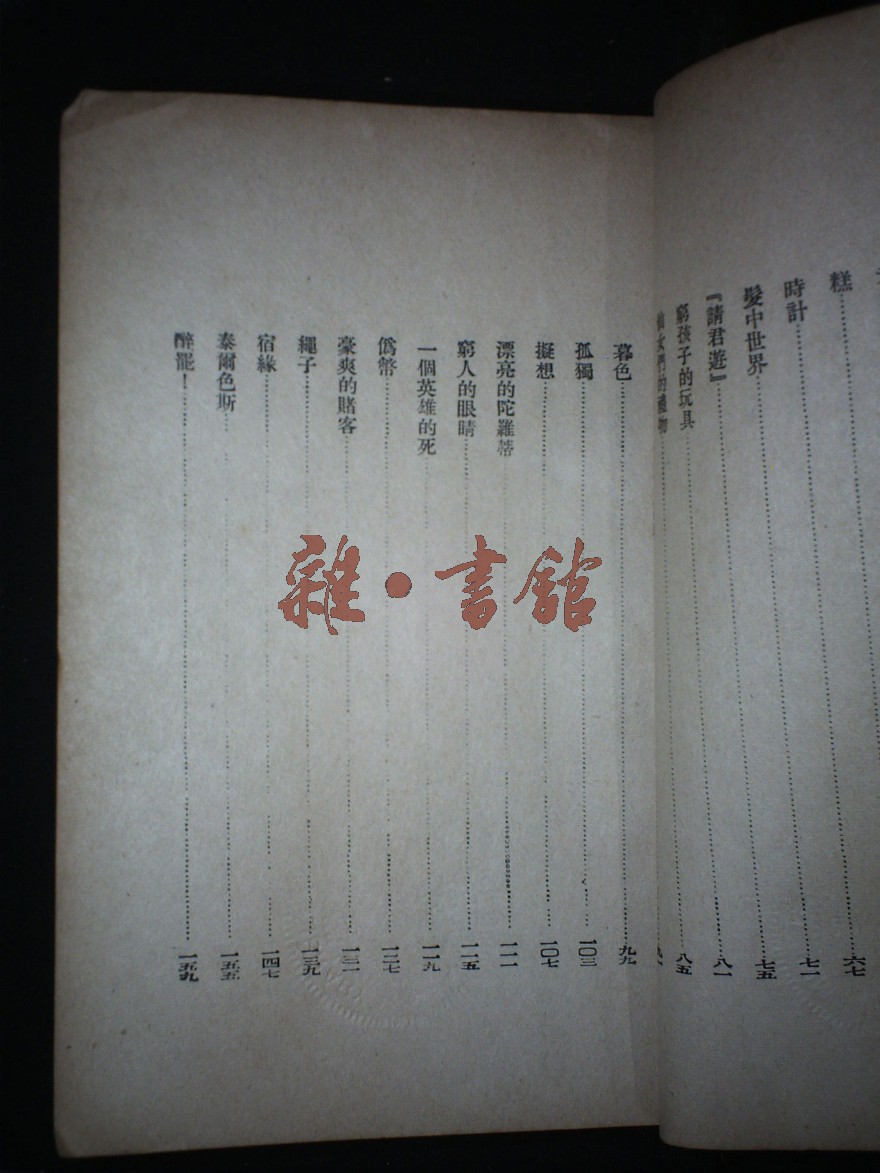 糕……六七
時計……七一
髮中世界……七五
『請君遊』……八一
窮孩子的玩具……八五
仙女們的禮物……九一
暮色……九九
孤獨……一〇三
擬想……一〇七
漂亮的陀羅蒂……一一一
窮人的眼睛……一一五
一個英雄的死……一一九
僞幣……一二七
豪爽的賭客……一三一
繩子……一三九
宿緣……一四七
泰爾色斯……一五五
醉罷！……一五九
雜·書館